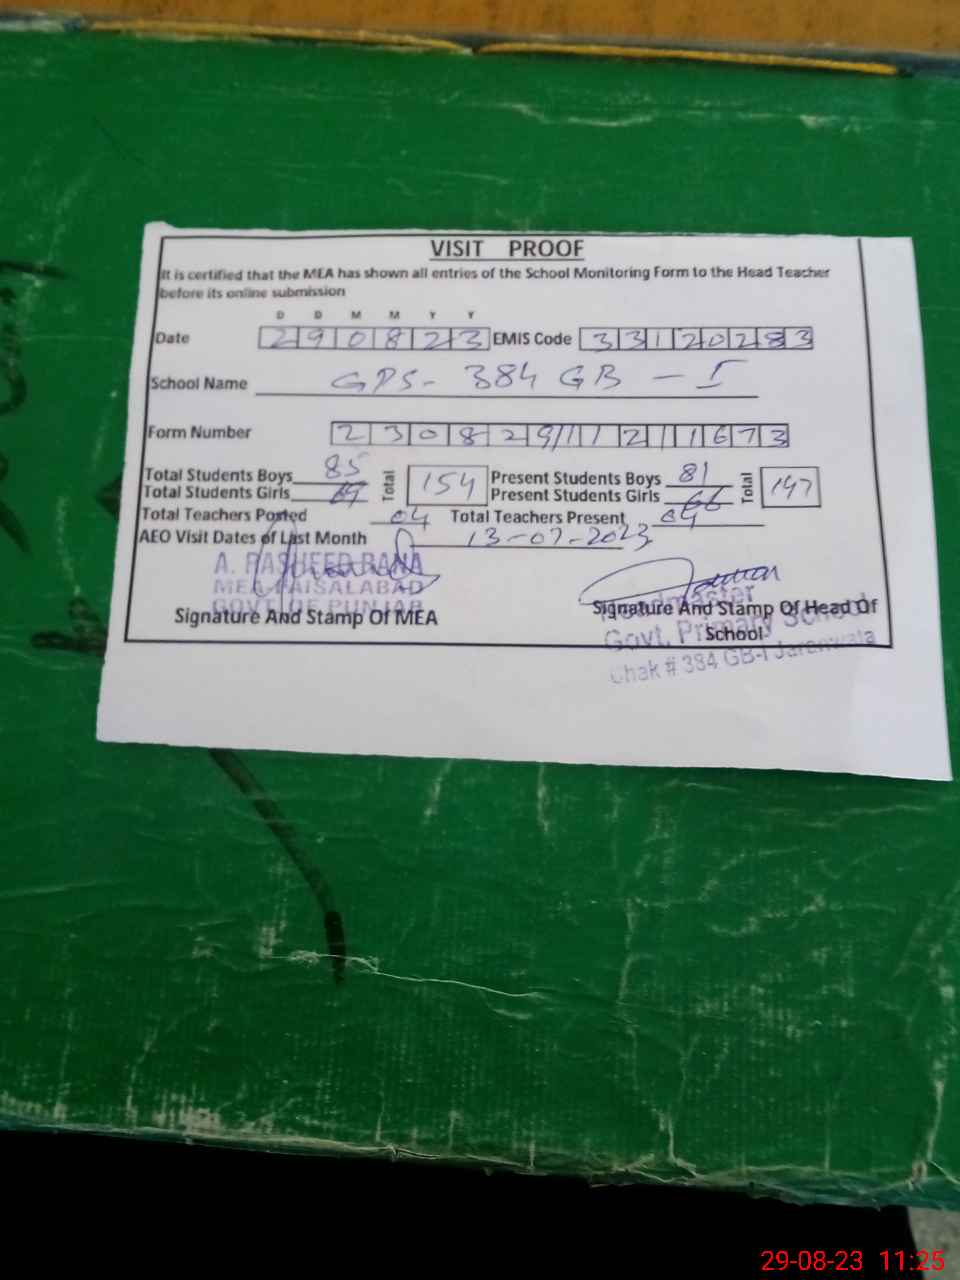 VISIT PROOF
It is certified that the MEA has shown all entries of the School Monitoring Form to the Head Teacher
before its online submission
D D M M Y Y
Date 290823 EMIS Code 33120283
School Name GPS- 384 GB - I
Form Number 2308291121 1673
Total Students Boys 85 Total 154 Present Students Boys 81 Total 147
Total Students Girls 69 Present Students Girls 66
Total Teachers Posted 04 Total Teachers Present 04
AEO Visit Dates of Last Month 13-07-2023
A. RASHEED RANA
MEA FAISALABAD
GOVT OF PUNJAB
Signature And Stamp Of MEA
Headmaster
Signature And Stamp Of Head Of
School
Govt. Primary School
Chak # 384 GB-I Jaranwala
29-08-23 11:25